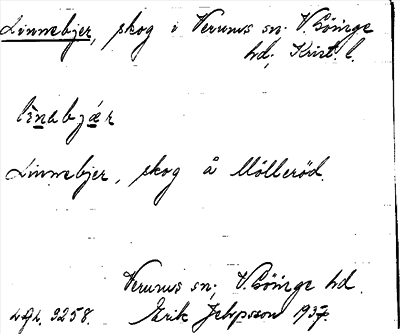 Linnebjer, skog i Verums sn; V. Göinge
hd; Krist. l.
lìnabjæ̀r
Linnebjer, skog å Mölleröd.
Verums sn; V. Göinge hd.
Lgh. 3258. Erik Jeppsson 1937.